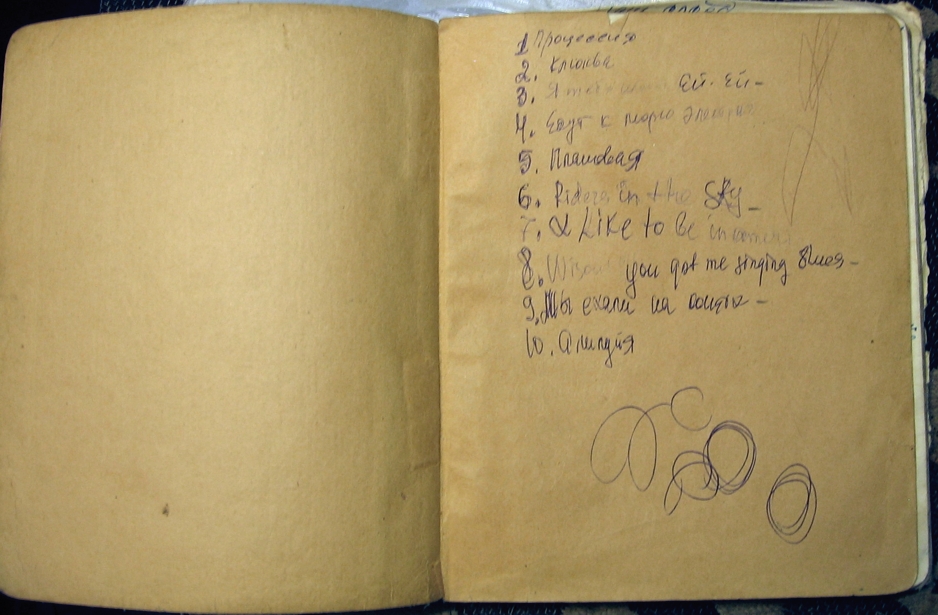 1 Процессия
2. Клюква
3. Я ей-ей-
4. Едут к
5. Плановая
6. Riders in the Sky_
7. I Like to be in
8. you got me singing Blues-
9. Мы ехали на
10. Алилуйя